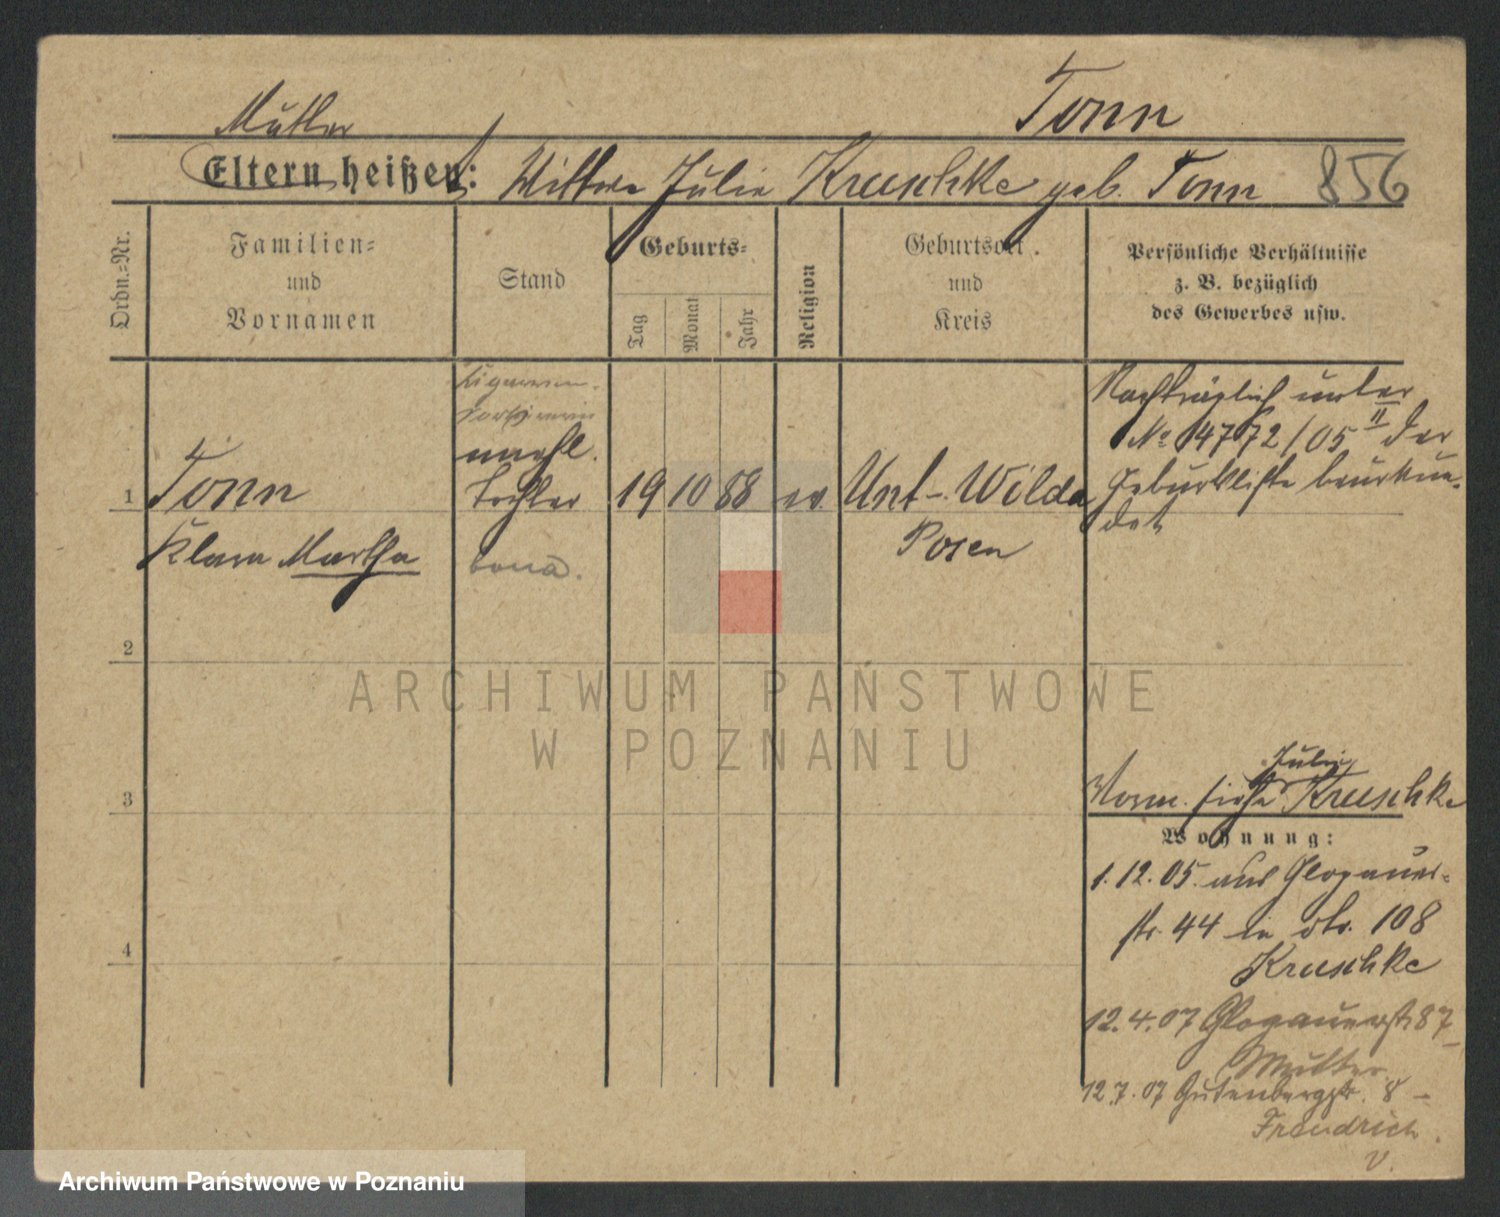 Tonn
Mutter
Eltern heißen: Wittwe Julie Kruschke geb. Tonn 856
Ordn.=Nr.
Familien=
und
Vornamen
Stand
Geburts=
Tag
Monat
Jahr
Religion
Geburtsort
und
Kreis
Persönliche Verhältnisse
z. B. bezüglich
des Gewerbes usw.
Zigarren-
sortiererin
unehl.
1 Tonn Tochter 19 10 88 ev. Unt-Wilda
Klara Martha
Posen
Nachträglich unter
No 14772/05 II der
Geburtsliste beurkun-
det
2
3
4
Julie
Vorm. siehe Kruschke
Wohnung:
1.12.05. aus Glogauer-
str. 44 in do. 108
Kruschke
12.4.07 Glogauerstr 87
Mutter
12.7.07 Gutenbergstr. 8 -
v.
ARCHIWUM PAŃSTWOWE
W POZNANIU
Archiwum Państwowe w Poznaniu